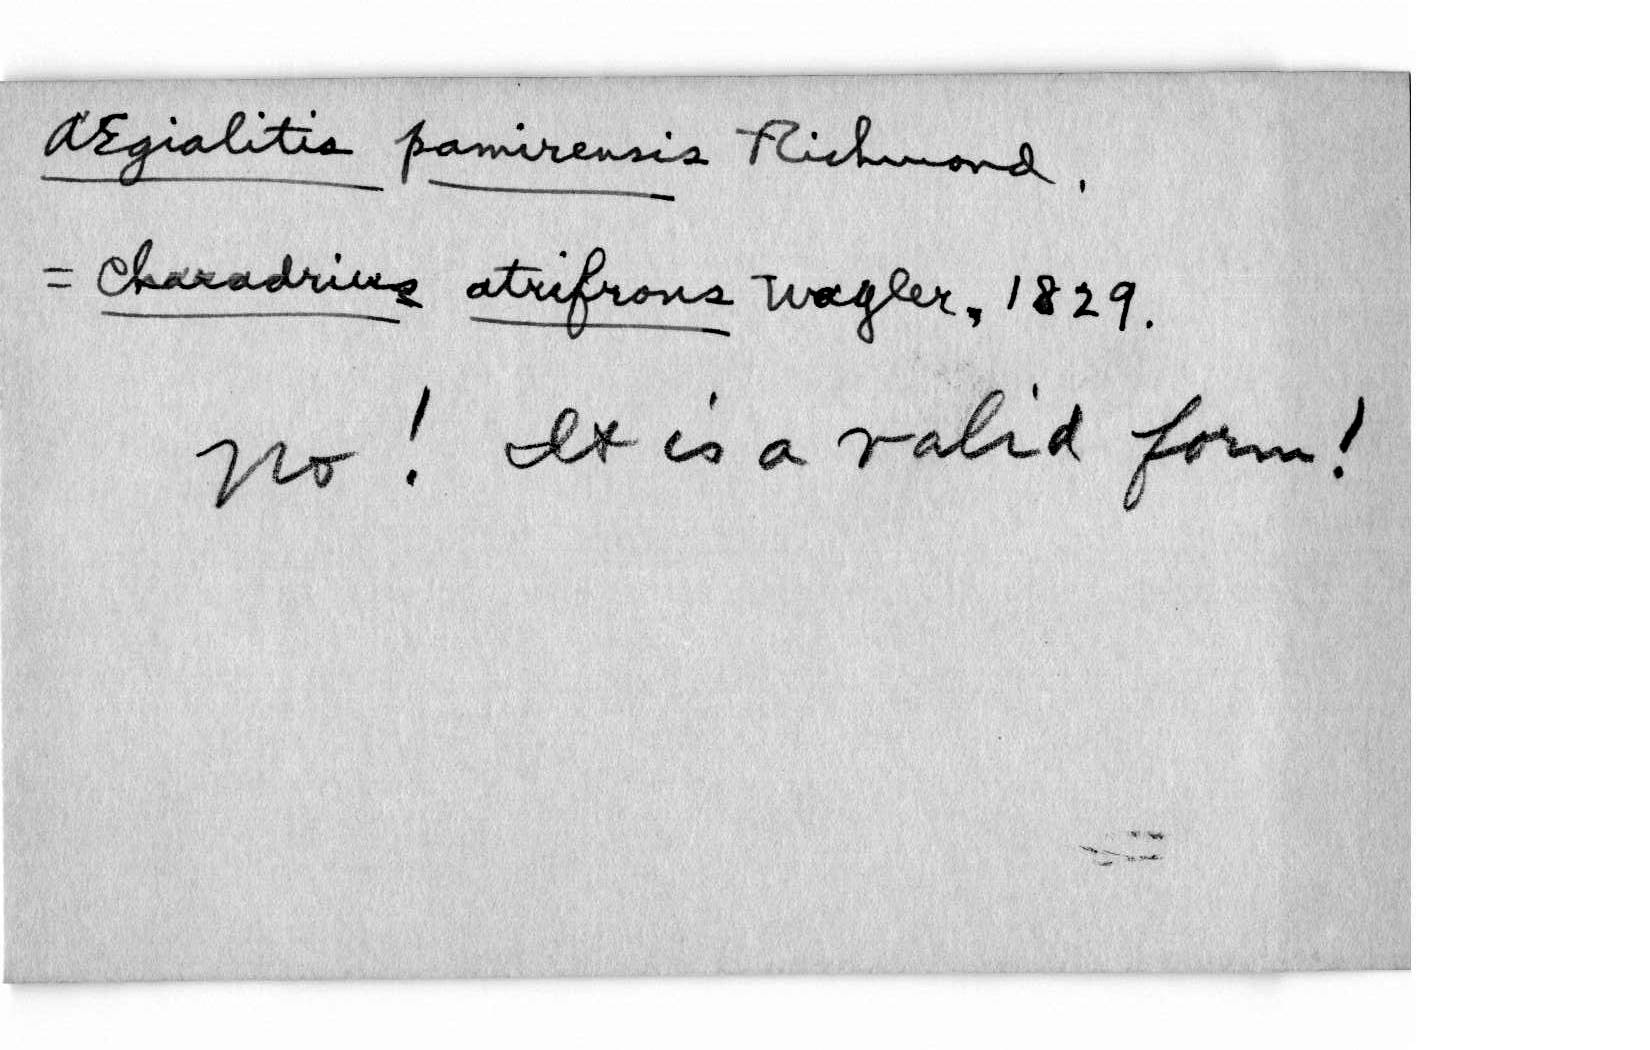 Ægialitis pamirensis Richmond.
= Charadrius atrifrons Wagler, 1829.
No! It is a valid form!